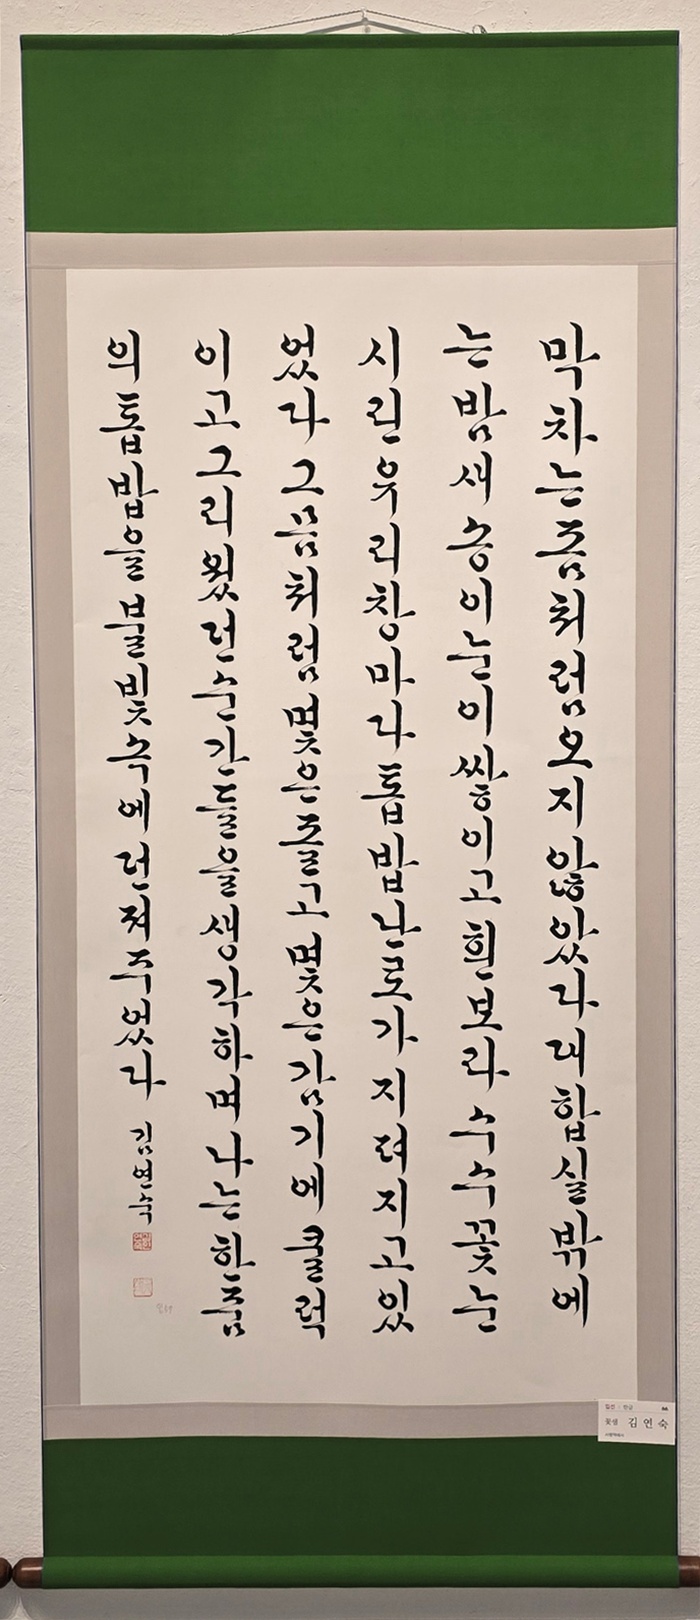 막차는좀처럼오지않았다대합실밖에
는밤새송이눈이쌓이고흰보라수수꽃눈
시린유리창마다톱밥난로가지펴지고있
었다그믐처럼몇은졸고몇은감기에쿨럭
이고그리웠던순간들을생각하며나는한줌
의톱밥을불빛속에던져주었다 김연숙
입선 · 한글
꽃샘 김연숙
사평역에서